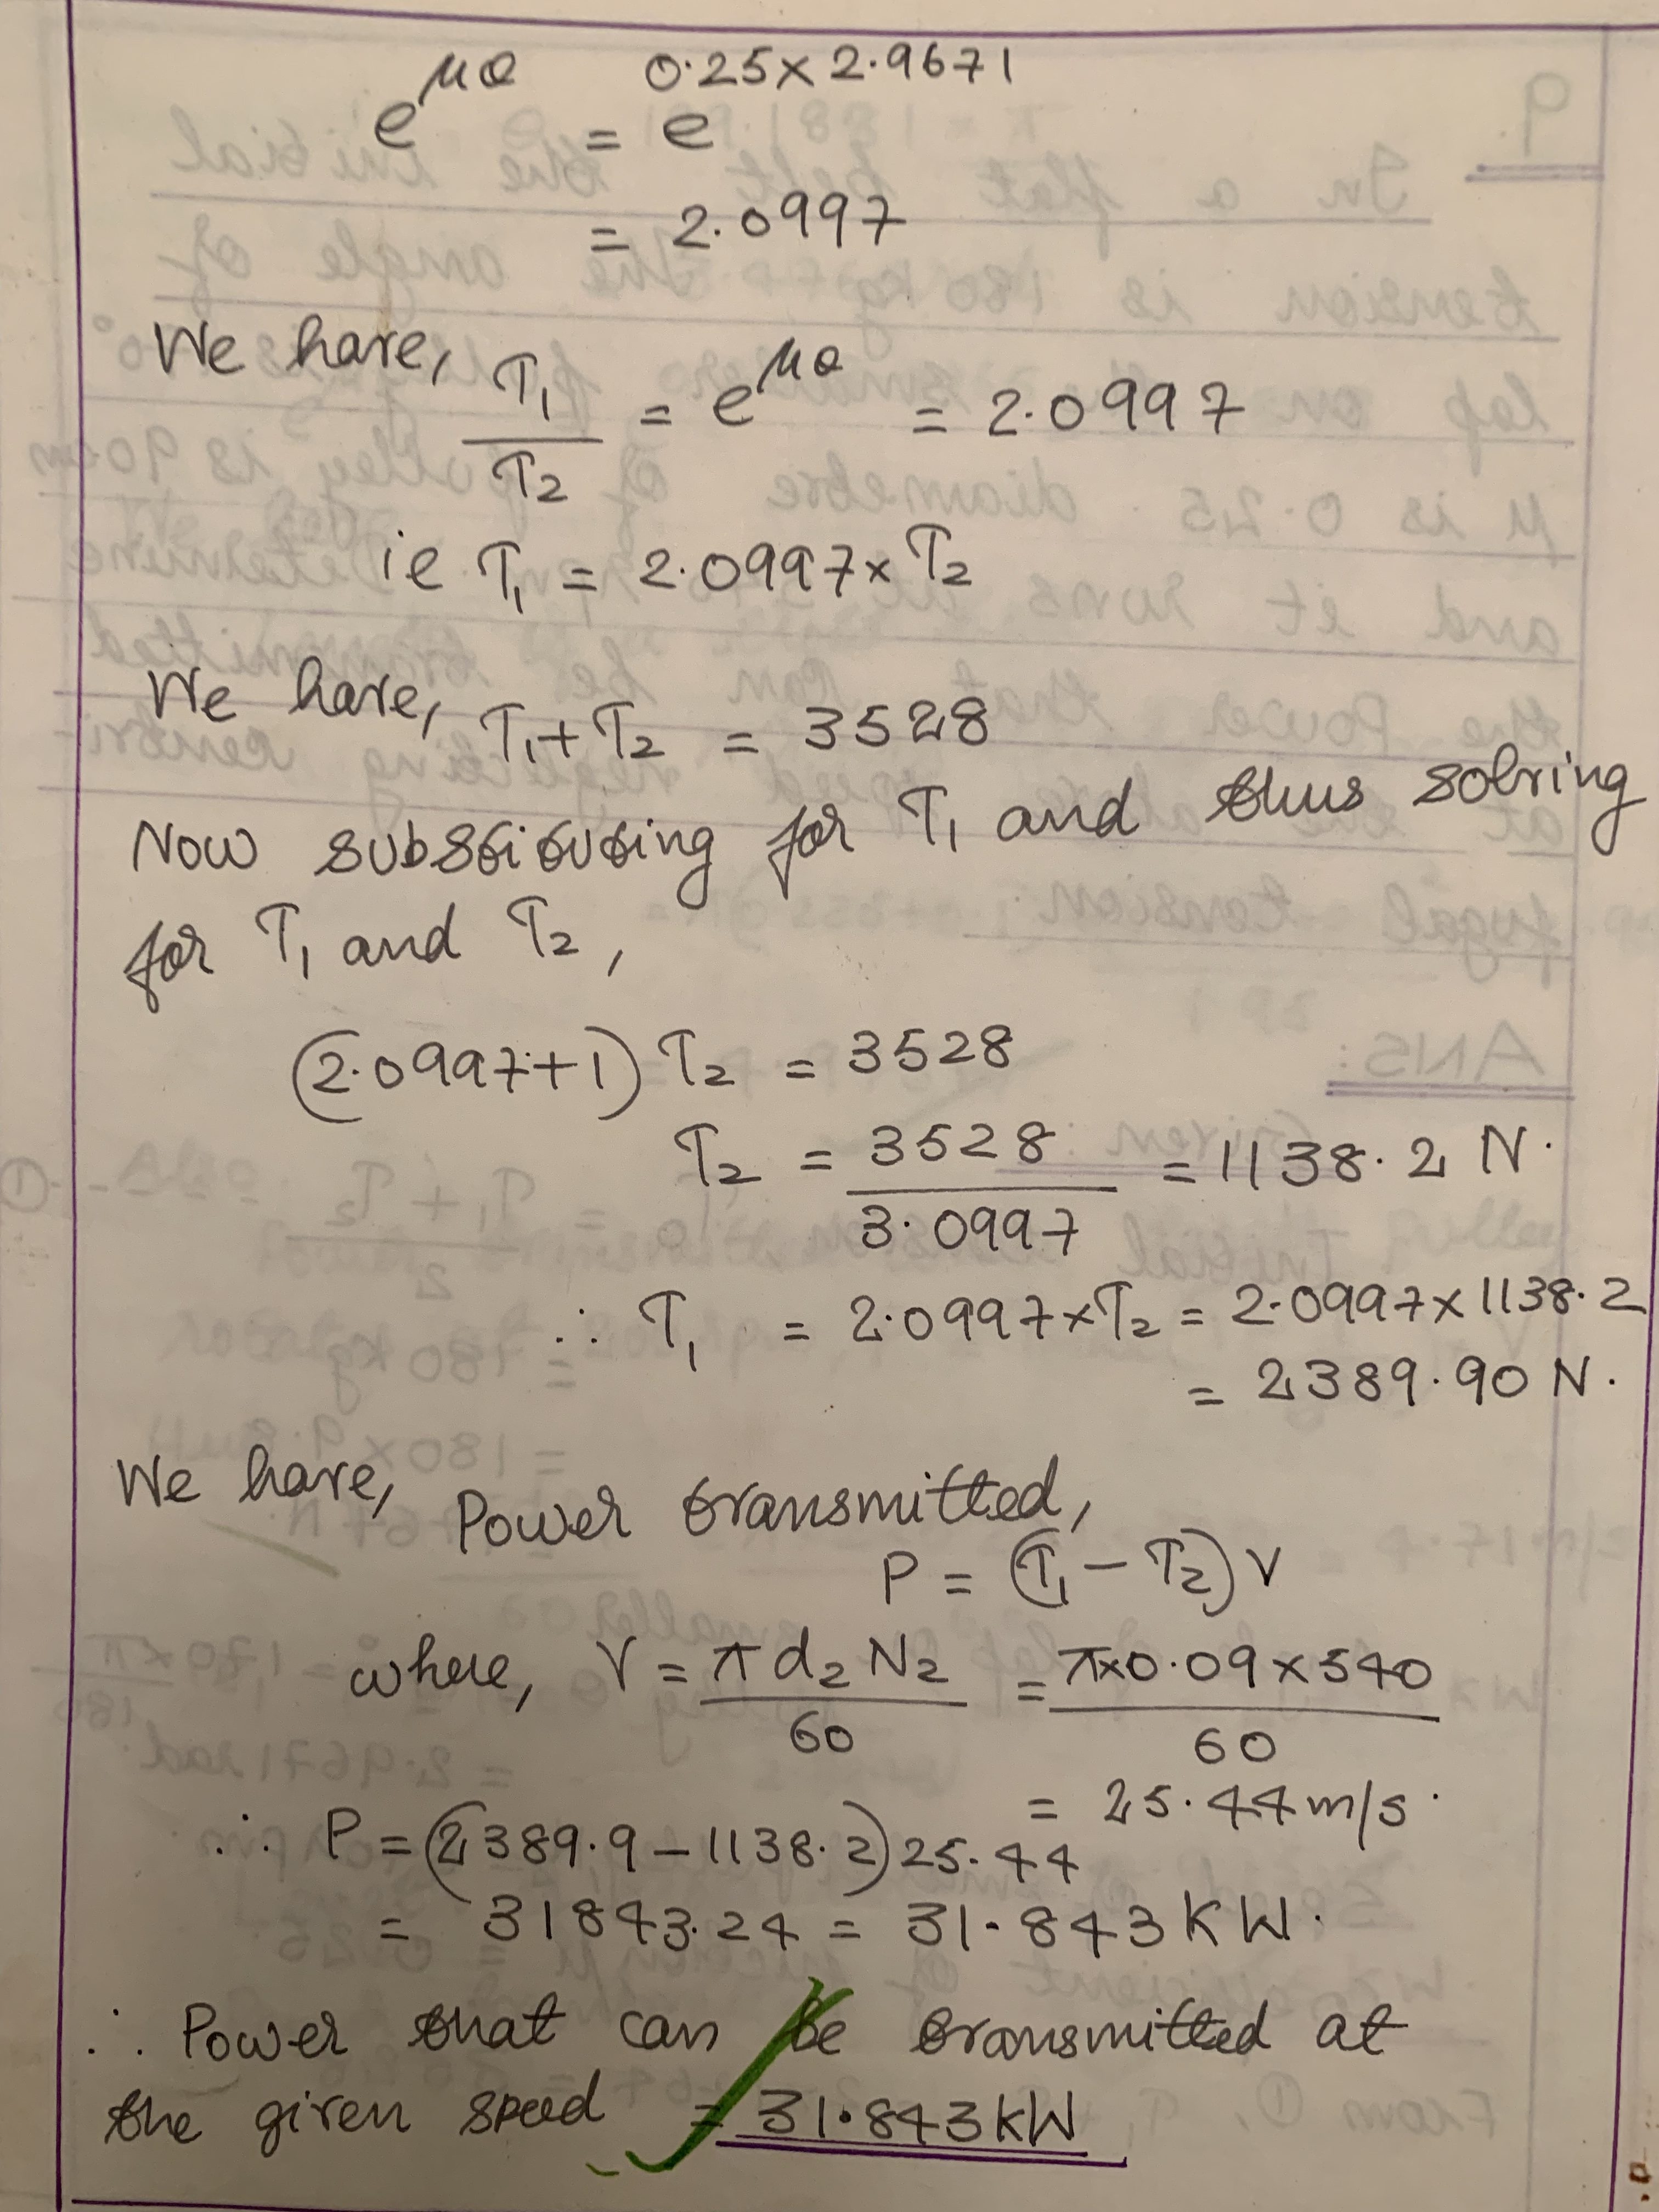 e^μθ = e^0.25×2.9671
= 2.0997
We have, T₁/T₂ = e^μθ = 2.0997
ie T₁ = 2.0997×T₂
We have, T₁+T₂ = 3528
Now substituting for T₁ and thus solving
for T₁ and T₂,
(2.0997+1) T₂ = 3528
T₂ = 3528/3.0997 = 1138.2 N.
∴ T₁ = 2.0997×T₂ = 2.0997×1138.2
= 2389.90 N.
We have, Power transmitted,
P = (T₁ − T₂) V
where, V = πd₂N₂/60 = π×0.09×540/60
= 25.44 m/s.
∴ P = (2389.9 − 1138.2) 25.44
= 31843.24 = 31.843 KW.
∴ Power that can be transmitted at
the given speed = 31.843 kW